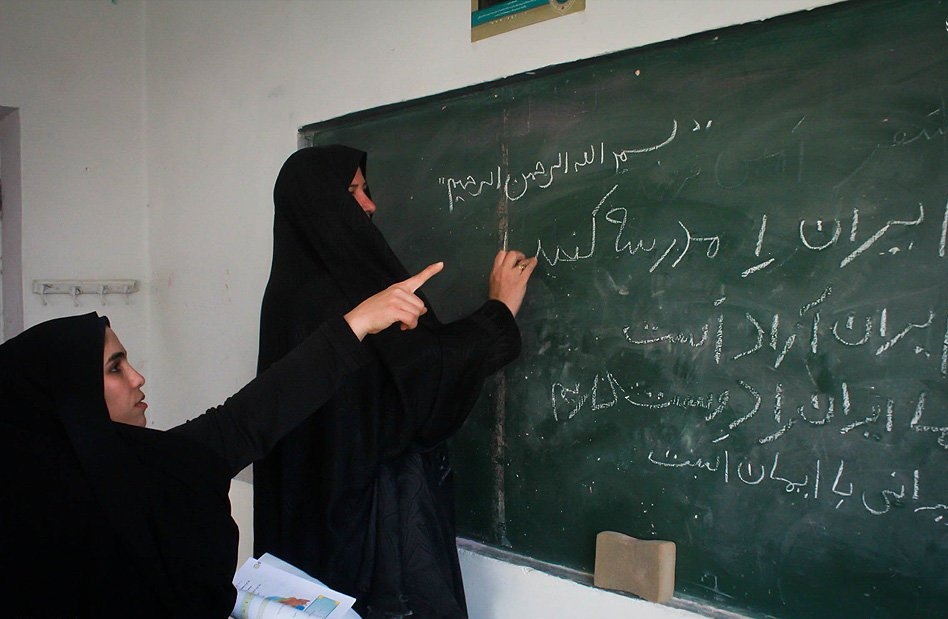 "بسم الله الرحمن الرحیم"
ایران را مدرسه کنید
یران آزاد است
ما ایران را دوست داریم
یرانی با ایمان است